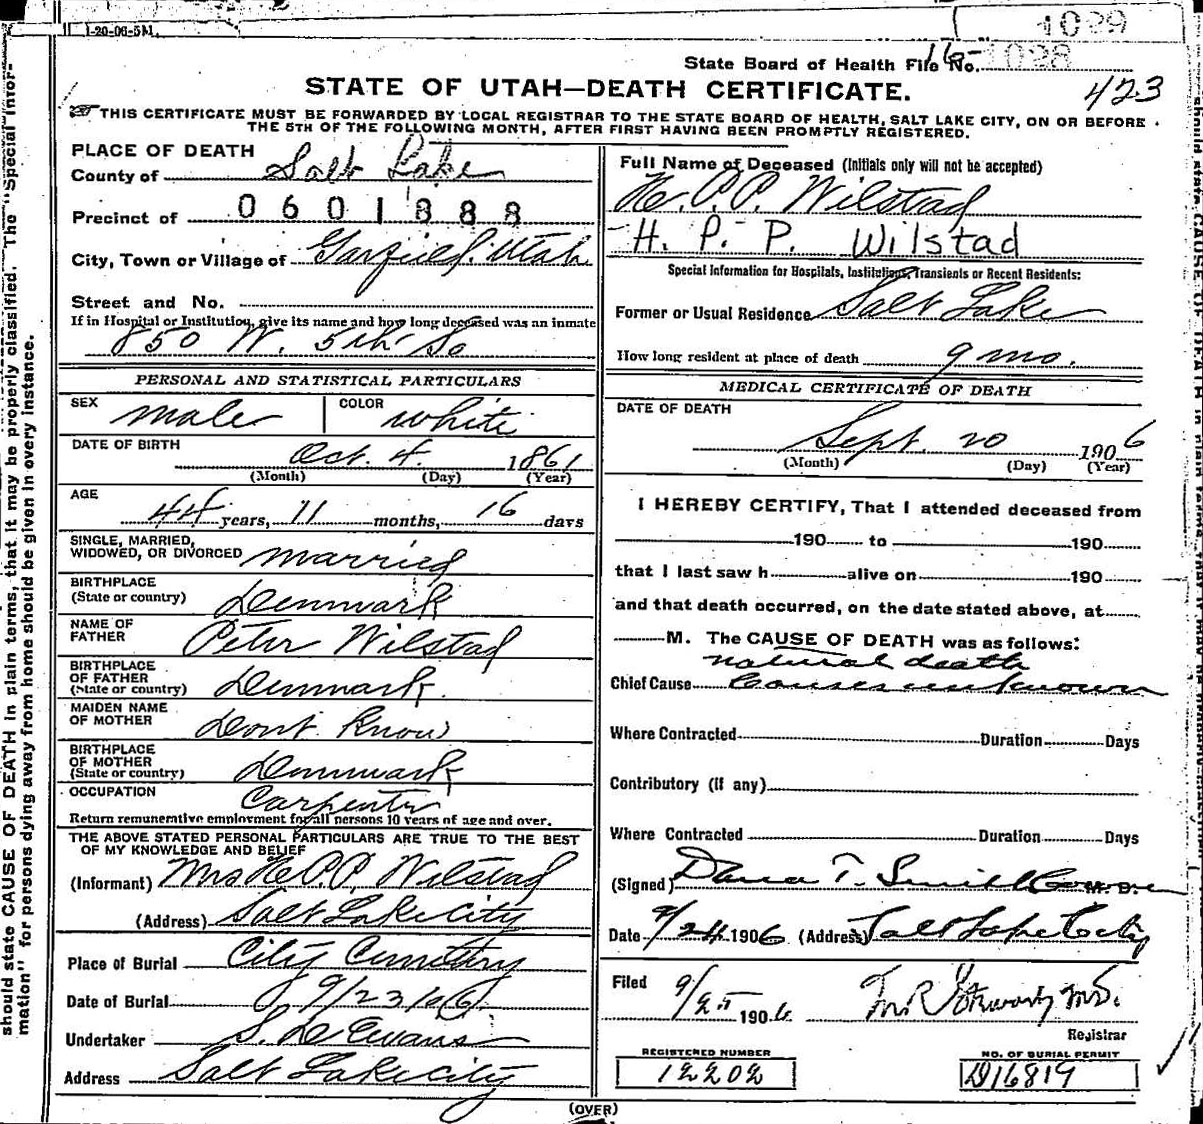 1-20-06-5M.
1029
State Board of Health File No. 1028
STATE OF UTAH—DEATH CERTIFICATE.
423
THIS CERTIFICATE MUST BE FORWARDED BY LOCAL REGISTRAR TO THE STATE BOARD OF HEALTH, SALT LAKE CITY, ON OR BEFORE
THE 5TH OF THE FOLLOWING MONTH, AFTER FIRST HAVING BEEN PROMPTLY REGISTERED.
PLACE OF DEATH
County of Salt Lake
Precinct of 0601888
City, Town or Village of Garfield. Utah
Street and No.
If in Hospital or Institution, give its name and how long deceased was an inmate
850 W. 5th So
PERSONAL AND STATISTICAL PARTICULARS
SEX male COLOR white
DATE OF BIRTH Oct. 4. 1861
(Month) (Day) (Year)
AGE
44 years, 11 months, 16 days
SINGLE, MARRIED,
WIDOWED, OR DIVORCED married
BIRTHPLACE
(State or country) Denmark
NAME OF
FATHER Peter Wilstad
BIRTHPLACE
OF FATHER
(State or country) Denmark.
MAIDEN NAME
OF MOTHER Dont Know
BIRTHPLACE
OF MOTHER
(State or country) Denmark
OCCUPATION Carpenter
Return remunerative employment for all persons 10 years of age and over.
THE ABOVE STATED PERSONAL PARTICULARS ARE TRUE TO THE BEST
OF MY KNOWLEDGE AND BELIEF
(Informant) Mrs H.P.P. Wilstad
(Address) Salt Lake City
Place of Burial City Cemetery
Date of Burial 9/23/06
Undertaker S. D. Evans
Address Salt Lake City
Full Name of Deceased (Initials only will not be accepted)
H. P. P. Wilstad
H. P. P. Wilstad
Special Information for Hospitals, Institutions, Transients or Recent Residents:
Former or Usual Residence Salt Lake
How long resident at place of death 9 mo.
MEDICAL CERTIFICATE OF DEATH
DATE OF DEATH
Sept. 20 1906
(Month) (Day) (Year)
I HEREBY CERTIFY, That I attended deceased from
190 to 190
that I last saw h alive on 190
and that death occurred, on the date stated above, at
M. The CAUSE OF DEATH was as follows:
natural death
Chief Cause Causes unknown
Where Contracted Duration Days
Contributory (if any)
Where Contracted Duration Days
(Signed) Dana T. Smith M.D.
Date 9/24 1906 (Address) Salt Lake City
Filed 9/25 1906 M.D.
Registrar
REGISTERED NUMBER
12202
NO. OF BURIAL PERMIT
D16819
(OVER)
should state CAUSE OF DEATH in plain terms, that it may be properly classified. The "Special Infor-
mation" for persons dying away from home should be given in every instance.